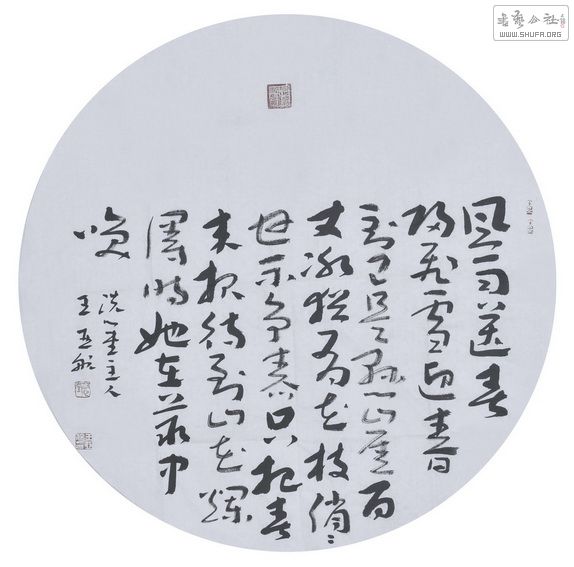 书艺公社
WWW.SHUFA.ORG
风雨送春
归飞雪迎春
到已是悬崖百
丈冰犹有花枝俏々
也不争春只把春
来报待到山花烂
漫时她在丛中
笑
主人
王亚